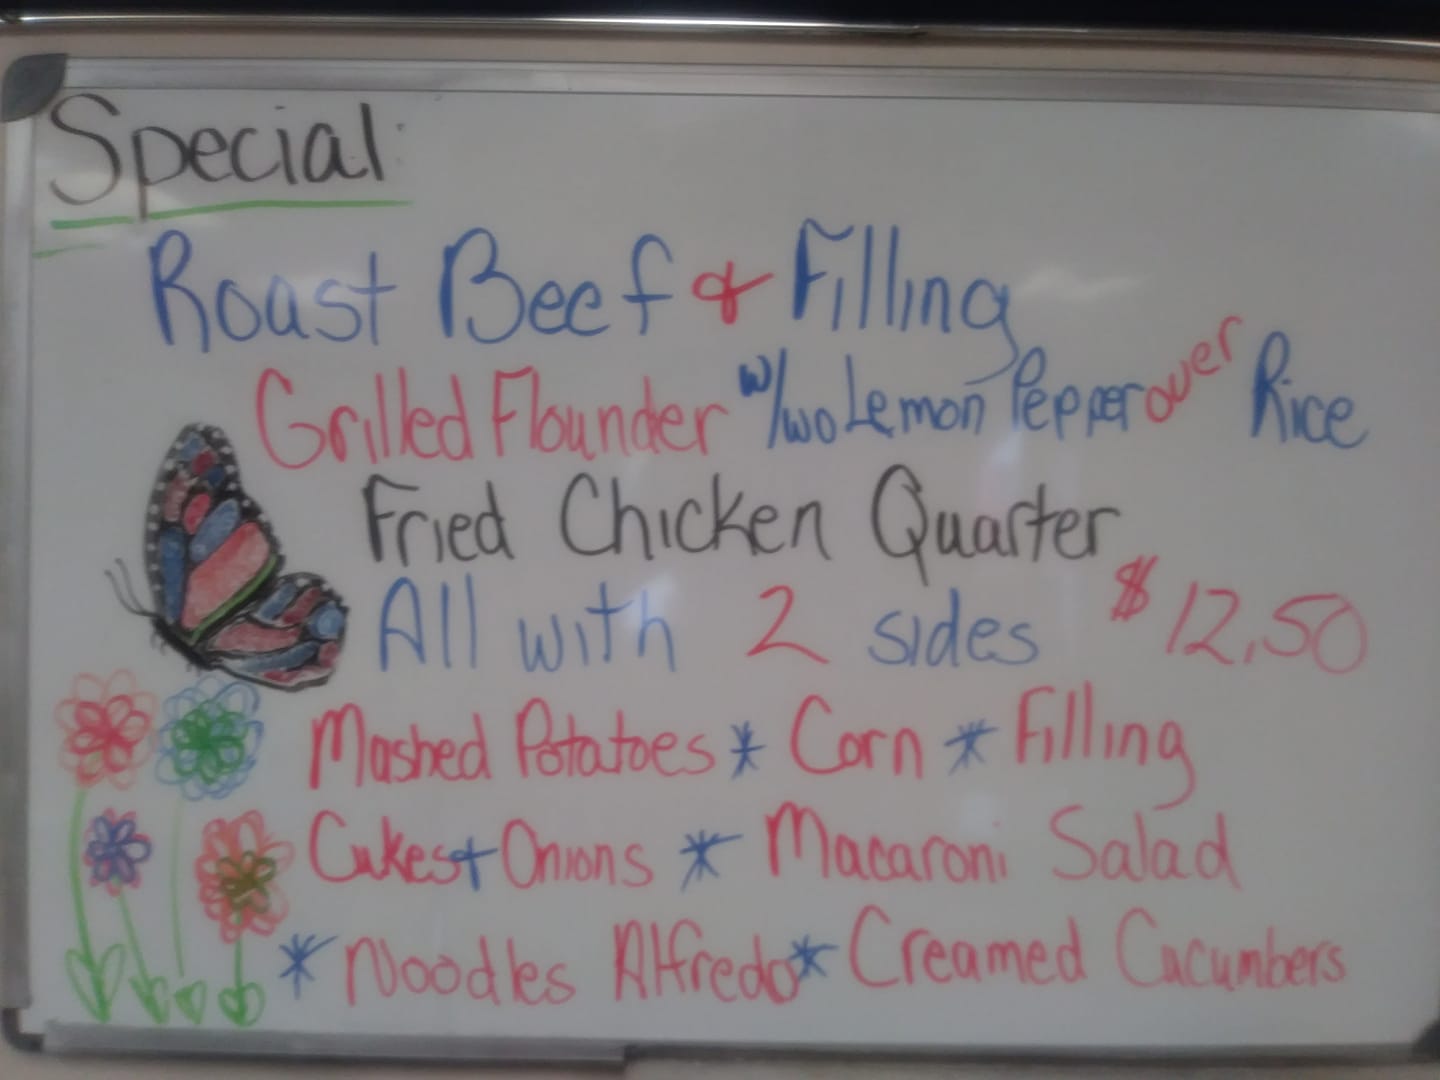 Special:
Roast Beef & Filling
Grilled Flounder w/wo Lemon Pepper over Rice
Fried Chicken Quarter
All with 2 sides $12.50
Mashed Potatoes * Corn * Filling
Cukes + Onions * Macaroni Salad
* Noodles Alfredo * Creamed Cucumbers